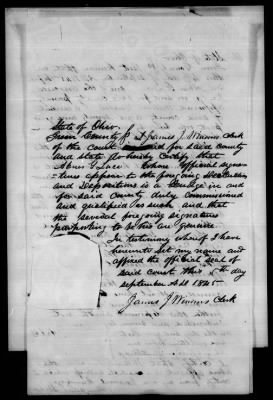 State of Ohio
Green County ss I James J Winans Clerk
of the court for said county
and state do hereby certify that
whose official signa-
tures appear to the forgoing
and Depositions is a in and
for said county duly commissioned
and qualified as such and that
the several forgoing signatures
purporting to be his are genuine.
In testimony whereof I have
hereunto set my name and
affixed the official seal of
said court this day
september AD 1845
James J Winans Clerk